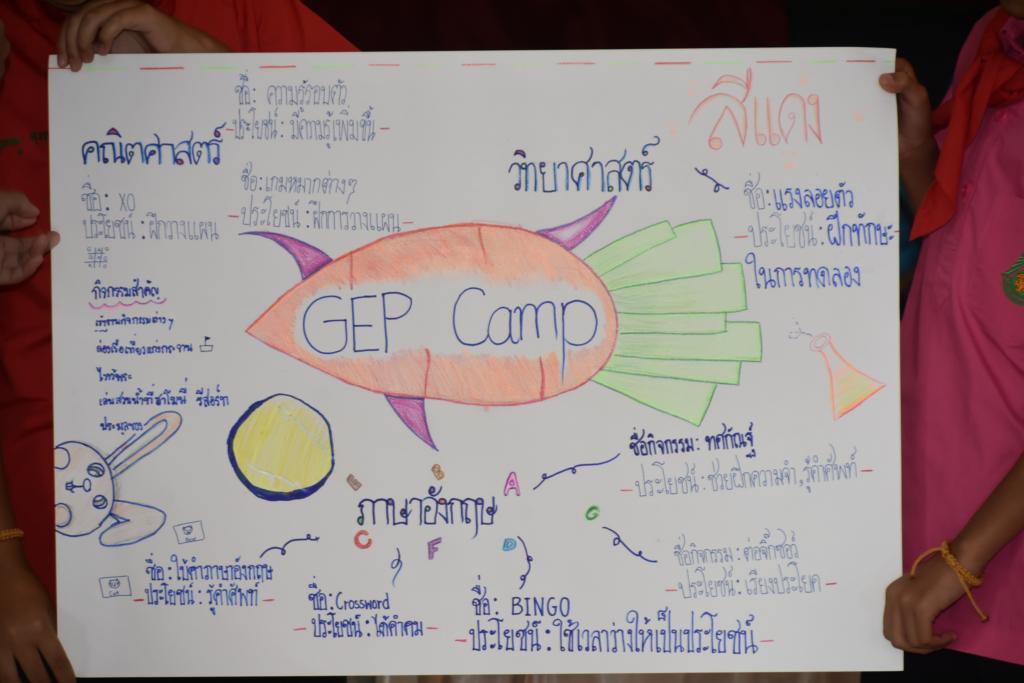 สีแดง
ชื่อ: ความรู้รอบตัว
-ประโยชน์: มีความรู้เพิ่มขึ้น-
คณิตศาสตร์
ชื่อ: XO
ประโยชน์: ฝึกวางแผน
ชื่อ:เกมหมากต่างๆ
-ประโยชน์:ฝึกการวางแผน-
วิทยาศาสตร์
ชื่อ:แรงลอยตัว
-ประโยชน์:ฝึกทักษะ-
ในการทดลอง
GEP Camp
กิจกรรมสำคัญ
เข้าฐานกิจกรรมต่างๆ
ล่องเรือเที่ยวแก่งกระจาน
ไหว้พระ
เล่นสวนน้ำที่ฮาโมนี่ รีสอร์ท
ชื่อกิจกรรม: ทศกัณฐ์
-ประโยชน์:ช่วยฝึกความจำ,รู้คำศัพท์-
E B A
ภาษาอังกฤษ
G
C F D
ชื่อกิจกรรม: ต่อจิ๊กซอว์
-ประโยชน์:เรียงประโยค-
ชื่อ:ใบ้คำภาษาอังกฤษ
-ประโยชน์: รู้คำศัพท์-
ชื่อ:Crossword
-ประโยชน์:ได้คำคม-
ชื่อ: BINGO
-ประโยชน์:ใช้เวลาว่างให้เป็นประโยชน์-